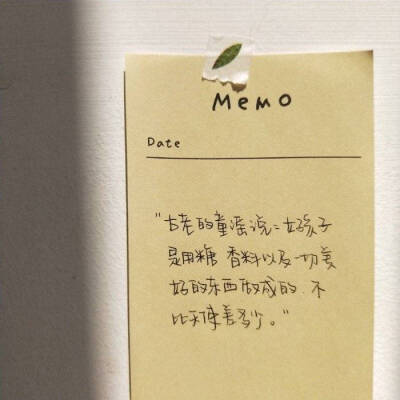 MeMO
Date
"古老的童谣说:好孩子
是用糖 香料以及一切美
好的东西做成的.不
比天使差多少。"